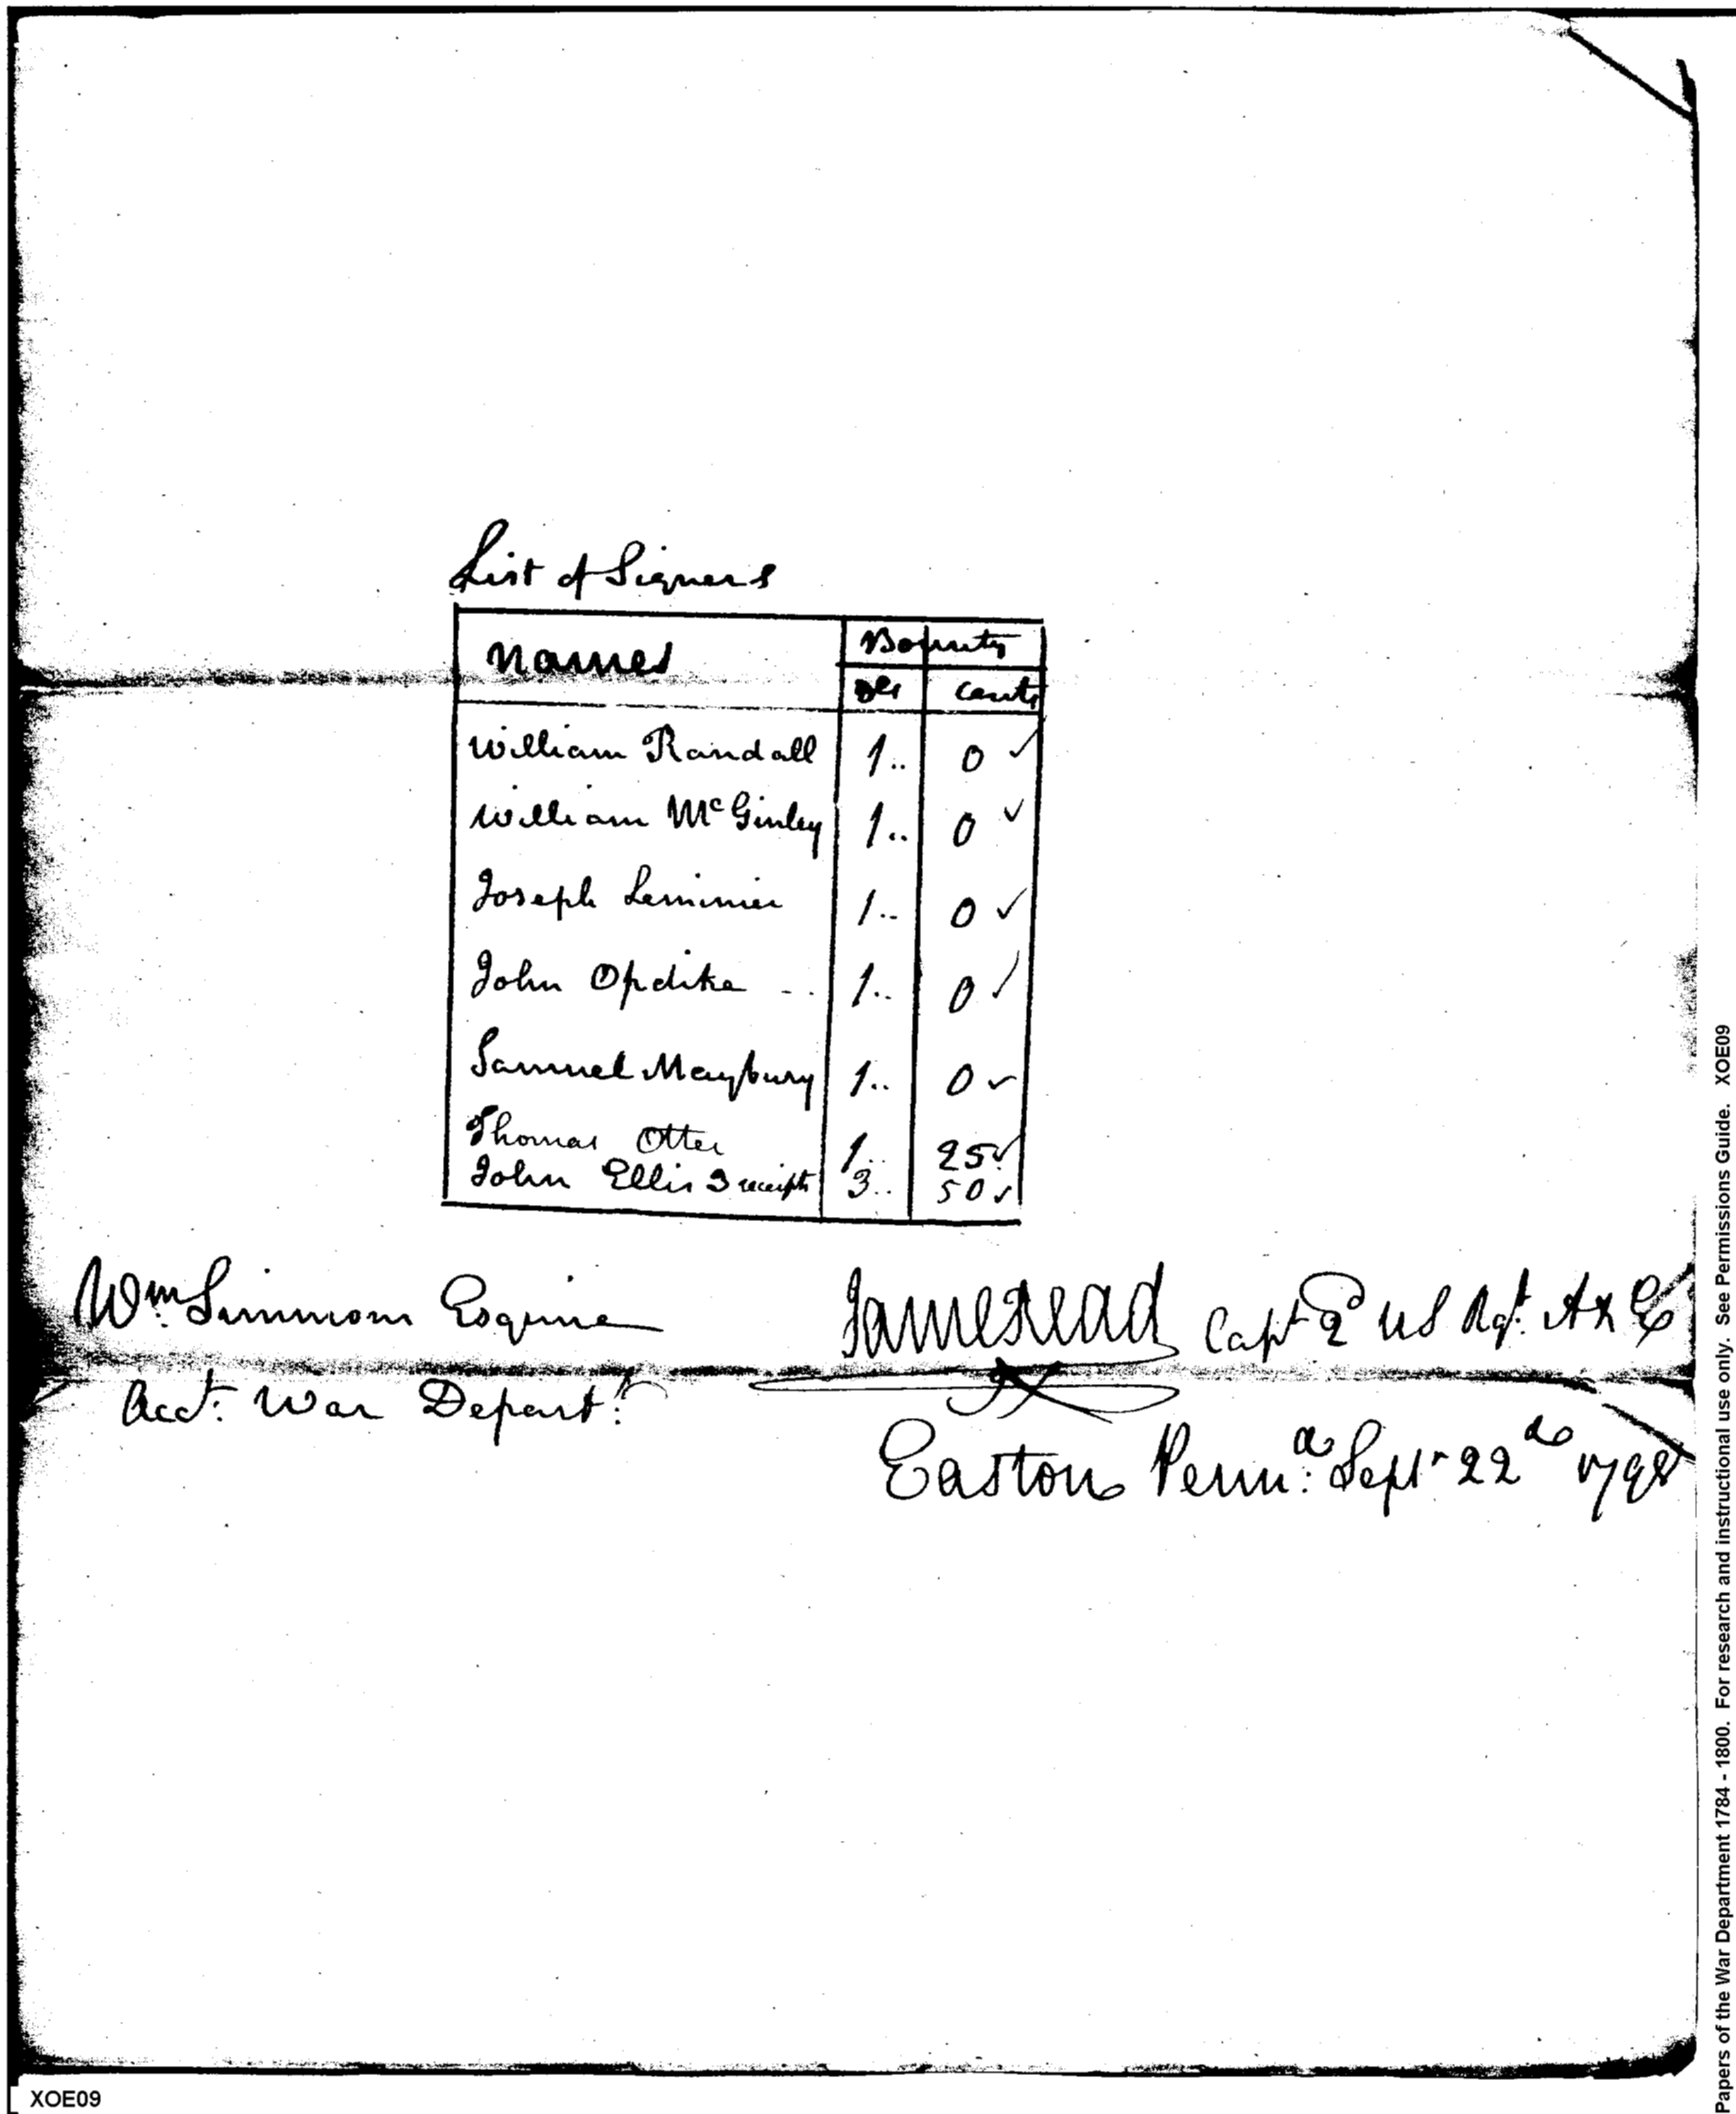 List of Signers
Names Bounty
Dls cents
William Randall 1.. 0 ✓
William McGinley 1.. 0 ✓
Joseph Lemmier 1.. 0 ✓
John Opdike - . 1.. 0 ✓
Samuel Maybury 1.. 0 ✓
Thomas Otter 1.. 25 ✓
John Ellis 3 receipts 3.. 50 ✓
Wm. Simmons Esquire James Read Capt 2d US Rgt. A & E
Acct. War Depart.t
Easton Penna. Sept. 22d 1798
XOE09
Papers of the War Department 1784 - 1800. For research and instructional use only. See Permissions Guide. XOE09